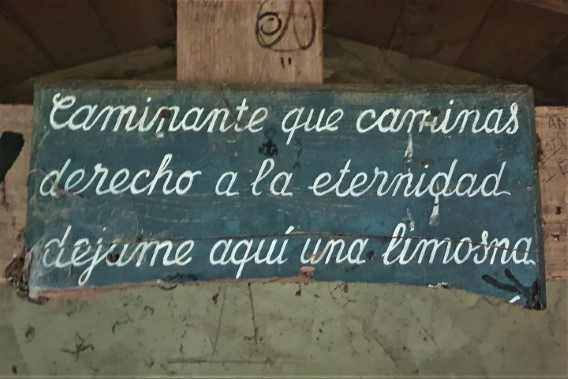 Caminante que caminas
derecho a la eternidad
dejame aquí una limosna